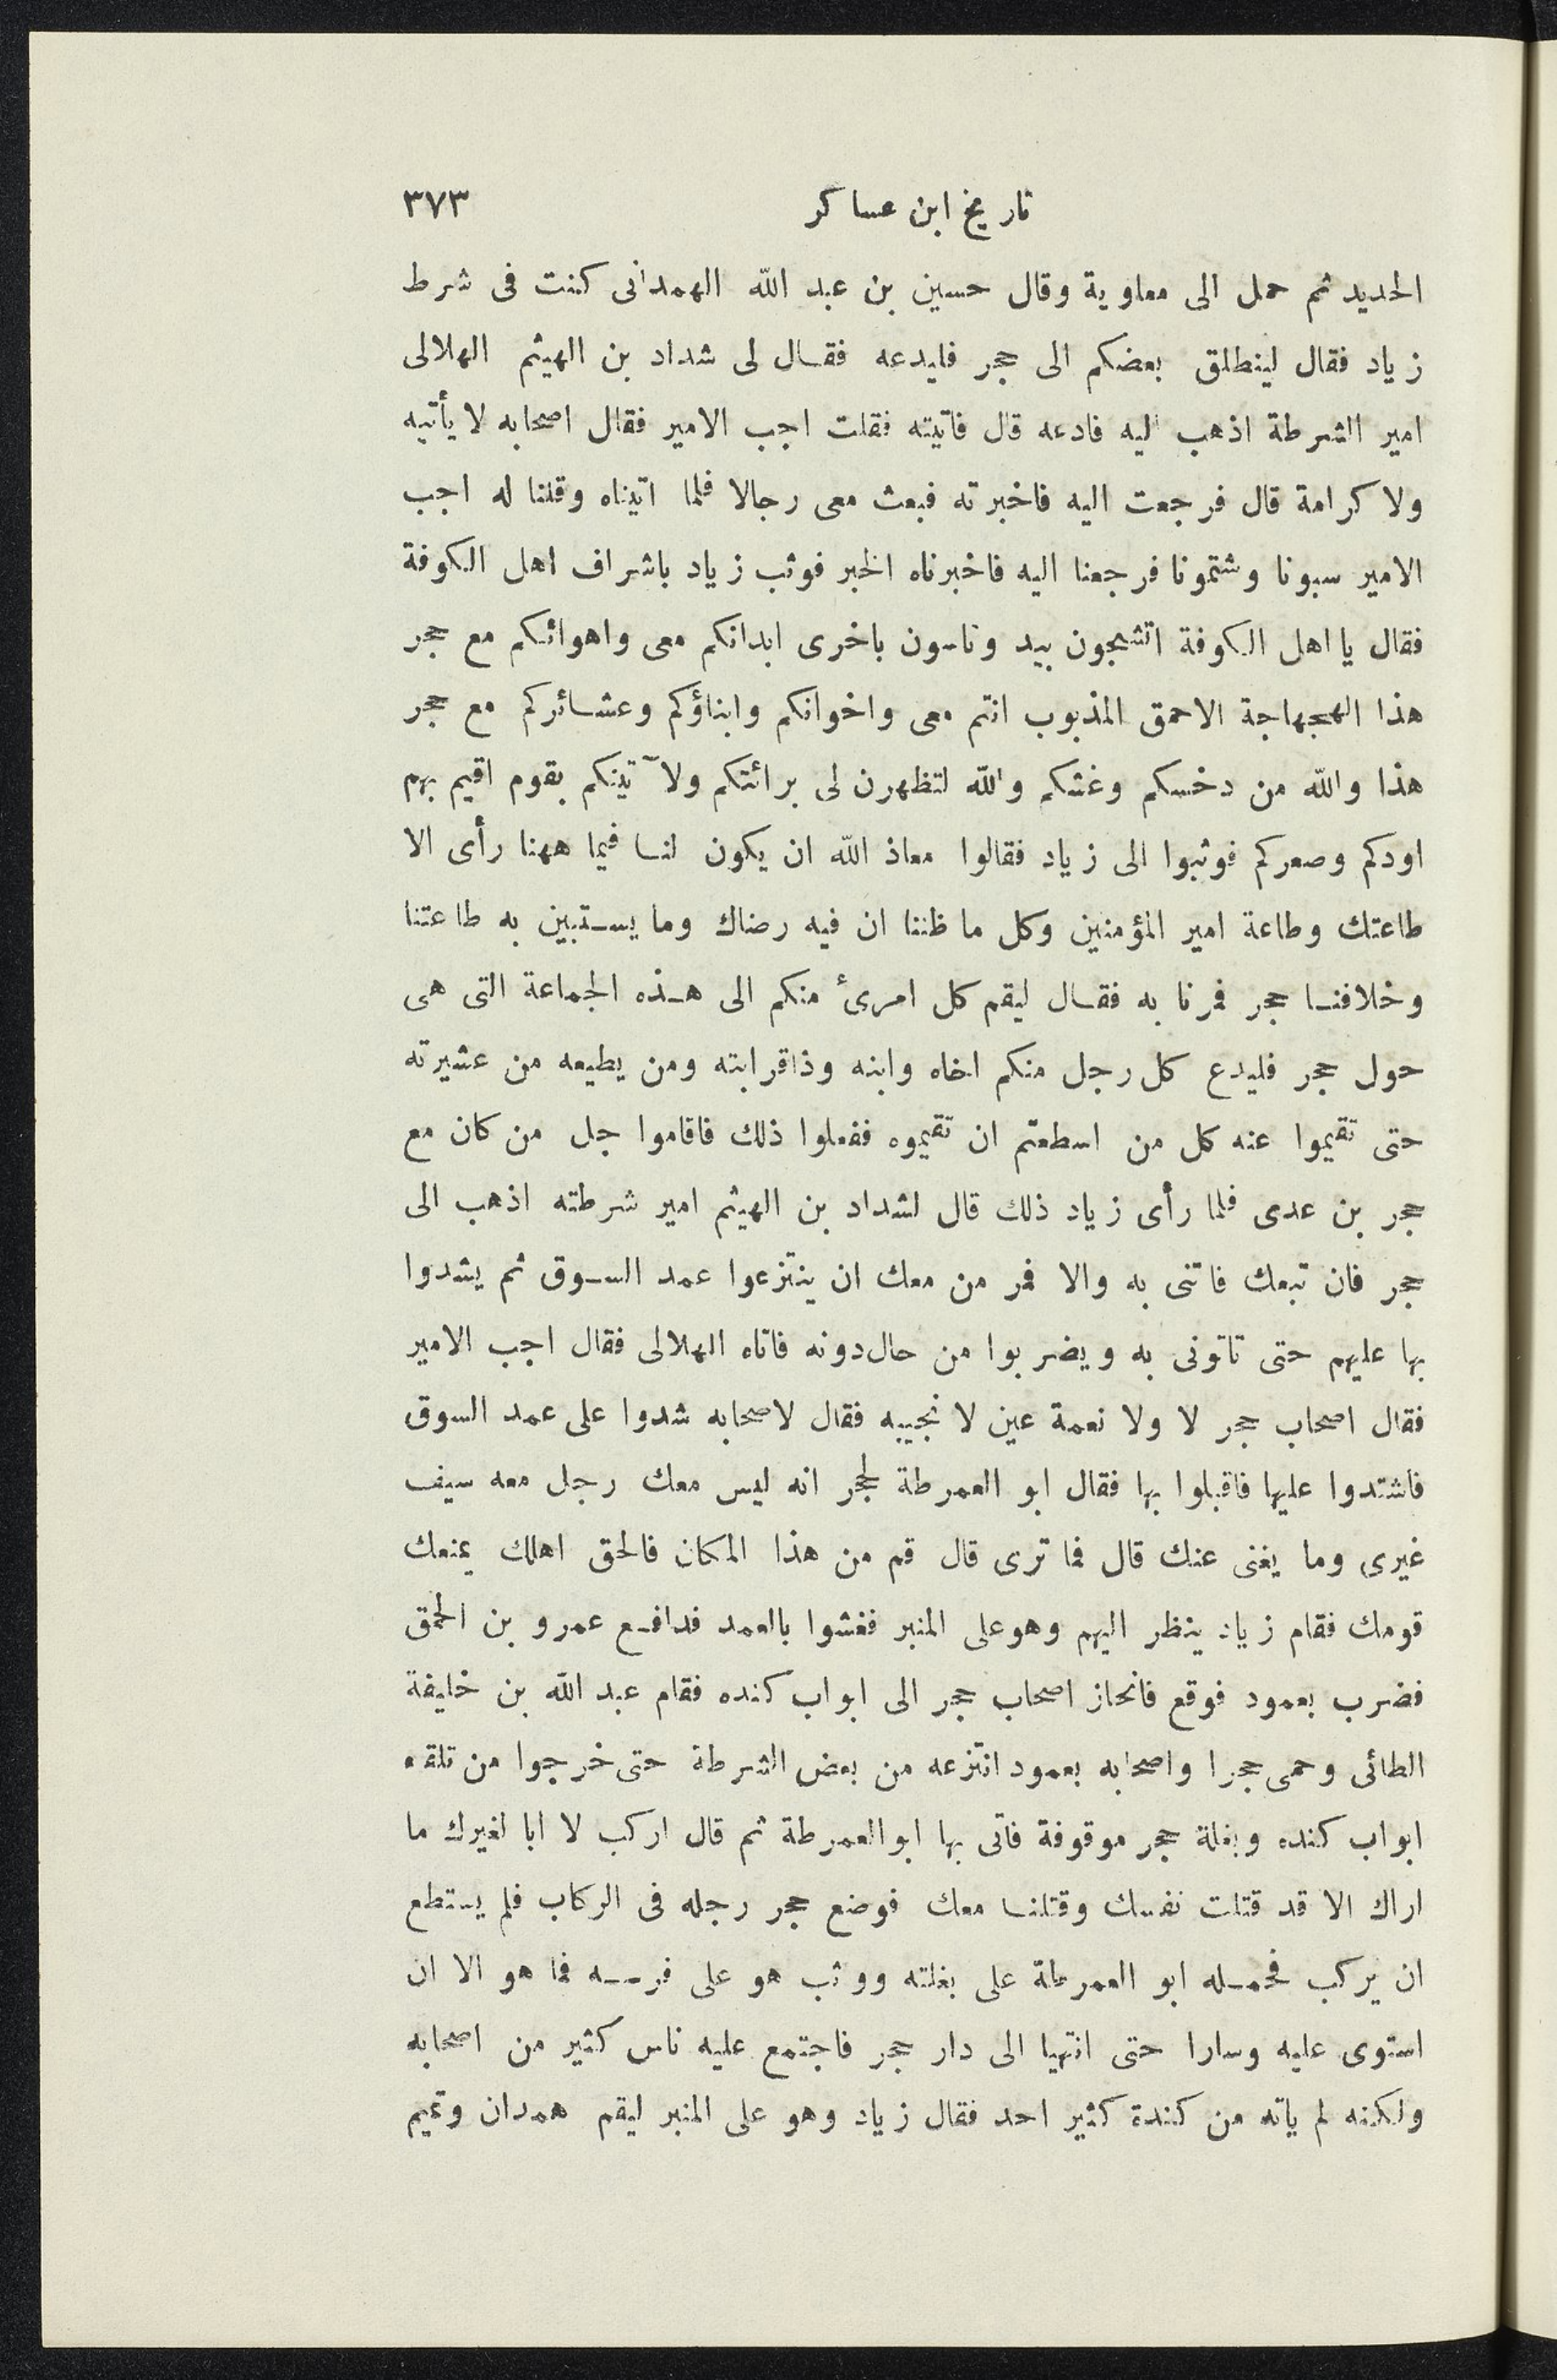 تاريخ ابن عساكر ٣٧٣
الحديد ثم حمل الى معاوية وقال حسين بن عبد الله الهمدانى كنت فى شرط
زياد فقال لينطلق بعضكم الى حجر فليدعه فقال لى شداد بن الهيثم الهلالى
امير الشرطة اذهب اليه فادعه قال فاتيته فقلت اجب الامير فقال اصحابه لا يأتيه
ولا كرامة قال فرجعت اليه فاخبرته فبعث معى رجالا فلما اتيناه وقلنا له اجب
الامير سبونا وشتمونا فرجعنا اليه فاخبرناه الخبر فوثب زياد باشراف اهل الكوفة
فقال يا اهل الكوفة اتشجون بيد وتاسون باخرى ابدانكم معى واهوائكم مع حجر
هذا الهجهاجة الاحمق المذبوب انتم معى واخوانكم وابناؤكم وعشائركم مع حجر
هذا والله من دخسكم وغشكم والله لتظهرن لى برائتكم ولآتينكم بقوم اقيم بهم
اودكم وصعركم فوثبوا الى زياد فقالوا معاذ الله ان يكون لنا فيما ههنا رأى الا
طاعتك وطاعة امير المؤمنين وكل ما ظننا ان فيه رضاك وما يستبين به طاعتنا
وخلافنا حجر فمرنا به فقال ليقم كل امرئ منكم الى هذه الجماعة التى هى
حول حجر فليدع كل رجل منكم اخاه وابنه وذاقرابته ومن يطيعه من عشيرته
حتى تقيموا عنه كل من اسطعتم ان تقيموه ففعلوا ذلك فاقاموا جل من كان مع
حجر بن عدى فلما رأى زياد ذلك قال لشداد بن الهيثم امير شرطته اذهب الى
حجر فان تبعك فاتنى به والا فمر من معك ان ينتزعوا عمد السوق ثم يشدوا
بها عليهم حتى تاتونى به ويضربوا من حال دونه فاتاه الهلالى فقال اجب الامير
فقال اصحاب حجر لا ولا نعمة عين لا نجيبه فقال لاصحابه شدوا على عمد السوق
فاشتدوا عليها فاقبلوا بها فقال ابو العمرطة لحجر انه ليس معك رجل معه سيف
غيرى وما يغنى عنك قال فما ترى قال قم من هذا المكان فالحق اهلك يمنعك
قومك فقام زياد ينظر اليهم وهو على المنبر فغشوا بالعمد فدافع عمرو بن الحمق
فضرب بعمود فوقع فانحاز اصحاب حجر الى ابواب كنده فقام عبد الله بن خليفة
الطائى وحمى حجرا واصحابه بعمود انتزعه من بعض الشرطة حتى خرجوا من تلقاء
ابواب كنده وبغلة حجر موقوفة فاتى بها ابو العمرطة ثم قال اركب لا ابا لغيرك ما
اراك الا قد قتلت نفسك وقتلنا معك فوضع حجر رجله فى الركاب فلم يستطع
ان يركب فحمله ابو العمرطة على بغلته ووثب هو على فرسه فما هو الا ان
استوى عليه وسارا حتى انتهيا الى دار حجر فاجتمع عليه ناس كثير من اصحابه
ولكنه لم ياته من كندة كثير احد فقال زياد وهو على المنبر ليقم همدان وتميم